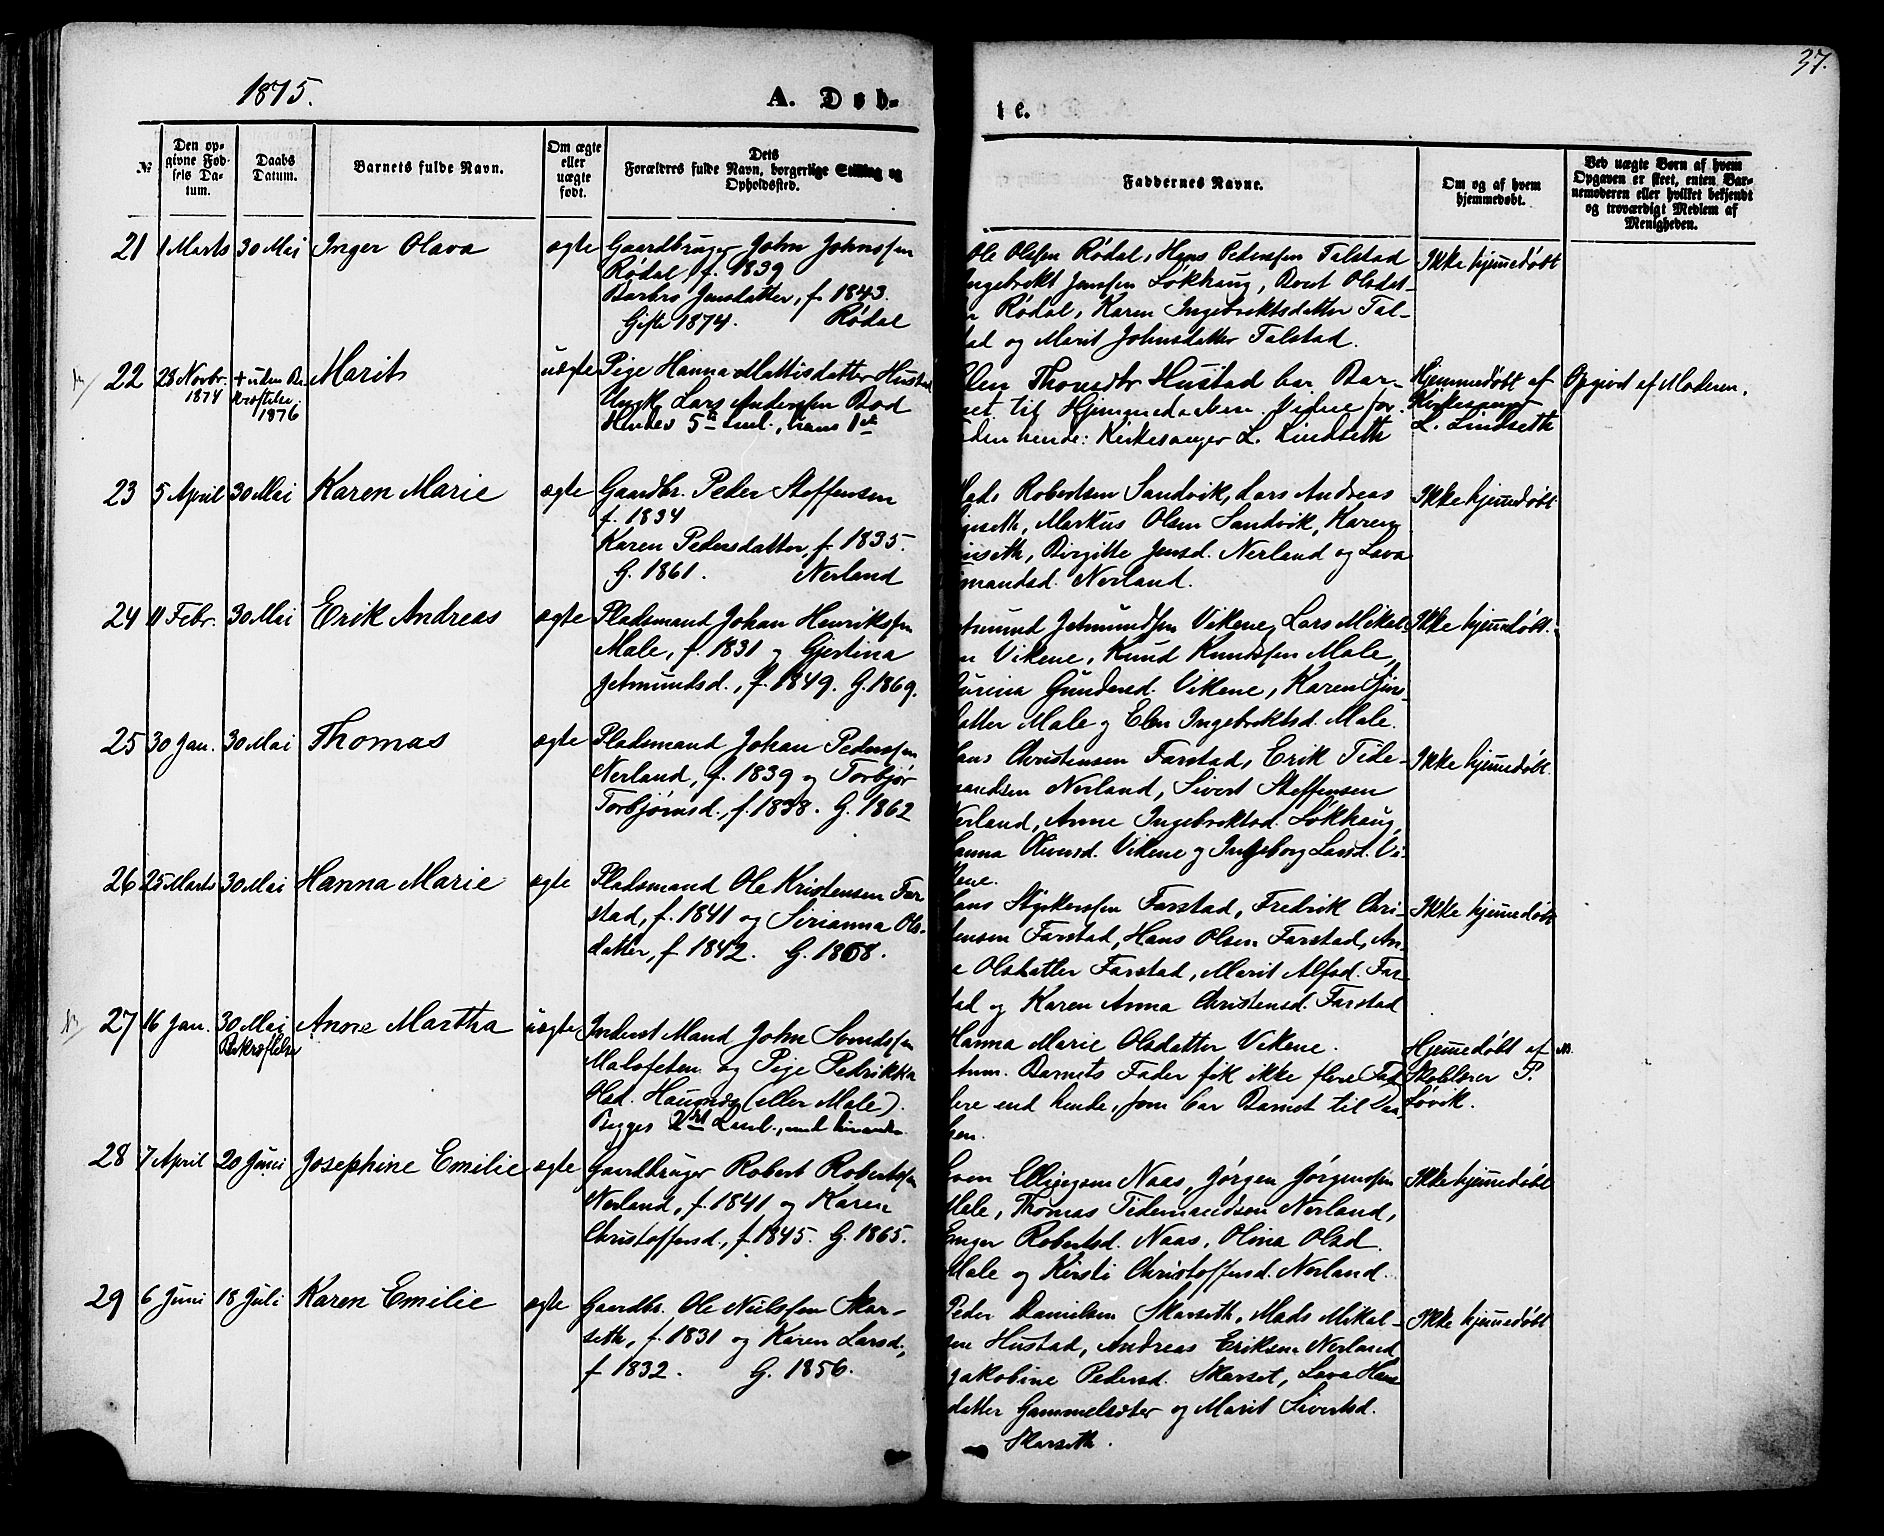 1875.
A. Døb-
te.
37.
No
Den opgivne Fødsels Datum.
Daabs Datum.
Barnets fulde Navn.
Om ægte eller uægte født.
Dets Forældres fulde Navn, borgerlige Stilling og Opholdssted.
Faddernes Navne.
Om og af hvem hjemmedøbt.
Ved uægte Børn af hvem Opgaven er skeet, enten Barnemoderen eller hvilket bekjendt og troværdigt Medlem af Menigheden.
21 1 Marts 30 Mai Inger Olava ægte
Gaardbruger John Johnssen
Rødal, f. 1839
Barbro Jensdatter, f. 1843.
Gifte 1874. Rødal
Ole Olssen Rødal, Hans Pederssen Talstad
Ingebrekt Jenssen Løkhaug, Olsdat-
Rødal, Karen Ingebrektsdatter Tal-
og Marit Johnsdatter Talstad.
Ikke hjemmedøbt
22 23 Novbr. 1874 + uden Be-
kræftelse
1876
Marit uægte
Pige Hanna Mattisdatter Hustad
Ungk. Lars Anderssen Bod
Hendes 5te Leil., hans 1ste
Thomsdtr Hustad bar Bar-
net til Hjemmedaaben. Vidne for-
uden hende: Kirkesanger L. Lindseth
Hjemmedøbt af
Kirkesanger
L. Lindseth
Opgivet af Moderen.
23 5 April 30 Mai Karen Marie ægte
Gaardbr. Peder Steffensen
f. 1834
Karen Pedersdatter, f. 1835.
G. 1861. Nerland
Mads Robertsen Sandvik, Lars Andreas
Markus Olsen Sandvik, Karen
Birgitte Jensd. Nerland og Lava
Nerland.
Ikke hjemmedøbt
24 11 Febr. 30 Mai Erik Andreas ægte
Pladsmand Johan Henrikssen
Male, f. 1831 og Gjertina
Jetmundsd., f. 1849. G. 1869.
Jetmund Jetmundssen Vikene, Lars Mikal-
Vikene, Knud Knudssen Male,
Gundersd. Vikene, Karen Jens-
datter Male og Elen Ingebrektsd. Male.
Ikke hjemmedøbt.
25 30 Jan. 30 Mai Thomas ægte
Pladsmand Johan Pederssen
Nerland, f. 1839 og Torbjør
Torbjørnsd., f. 1838. G. 1862
Hans Christensen Farstad, Erik Tide-
mandsen Nerland, Sivert Steffensen
Nerland, Anne Ingebrektsd. Løkhaug,
Hanna Oliversd. Vikene og Ingeborg Larsd. Vi-
kene.
Ikke hjemmedøbt.
26 25 Marts 30 Mai Hanna Marie ægte
Pladsmand Ole Kristensen Far
stad, f. 1841 og Sirianna Ols-
datter, f 1842. G. 1868.
Hans Farstad, Fredrik Chri-
stensen Farstad, Hans Olsen Farstad, An-
Olsdatter Farstad, Marit Alfsd. Far-
stad og Karen Anna Christensd. Farstad
Ikke hjemmedøbt
27 16 Jan. 30 Mai
Bekræftelse
Anne Martha uægte
Inderst Mand John
Malefeten og Pige Pedrikka
Olsd. Haugnæs (eller Male).
Begges 2det Leirb., med hinanden
Hanna Marie Olsdatter Vikene.
Anm. Barnets Fader fik ikke flere Fad
dere end hende, som bar Barnet til Daa-
ben.
Hjemmedøbt af
Skolelærer P.
Løvik.
28 7 April 20 Juni Josephine Emilie ægte
Gaardbruger Robert Robertssen
Nerland, f. 1841 og Karen
Christoffersd., f. 1845. G. 1865.
Ellingsen Naas, Jørgen Jørgenssen
Male, Thomas Tidemandsen Nerland,
Inger Robertsd. Naas, Olina Olsd
Male og Kirsti Christoffersd. Nerland.
Ikke hjemmedøbt
29 6 Juni 18 Juli Karen Emilie ægte
Gaardbr. Ole Nielssen Skar-
seth, f. 1831 og Karen Larsd.,
f 1832. G. 1856.
Peder Danielsen Skarseth, Mads Mikal-
sen Hustad, Andreas Eriksen Nerland
Jakobine Pedersd. Skarset, Lava Hans
datter Gammelsæter og Marit Sivertsd.
Skarseth.
Ikke hjemmedøbt